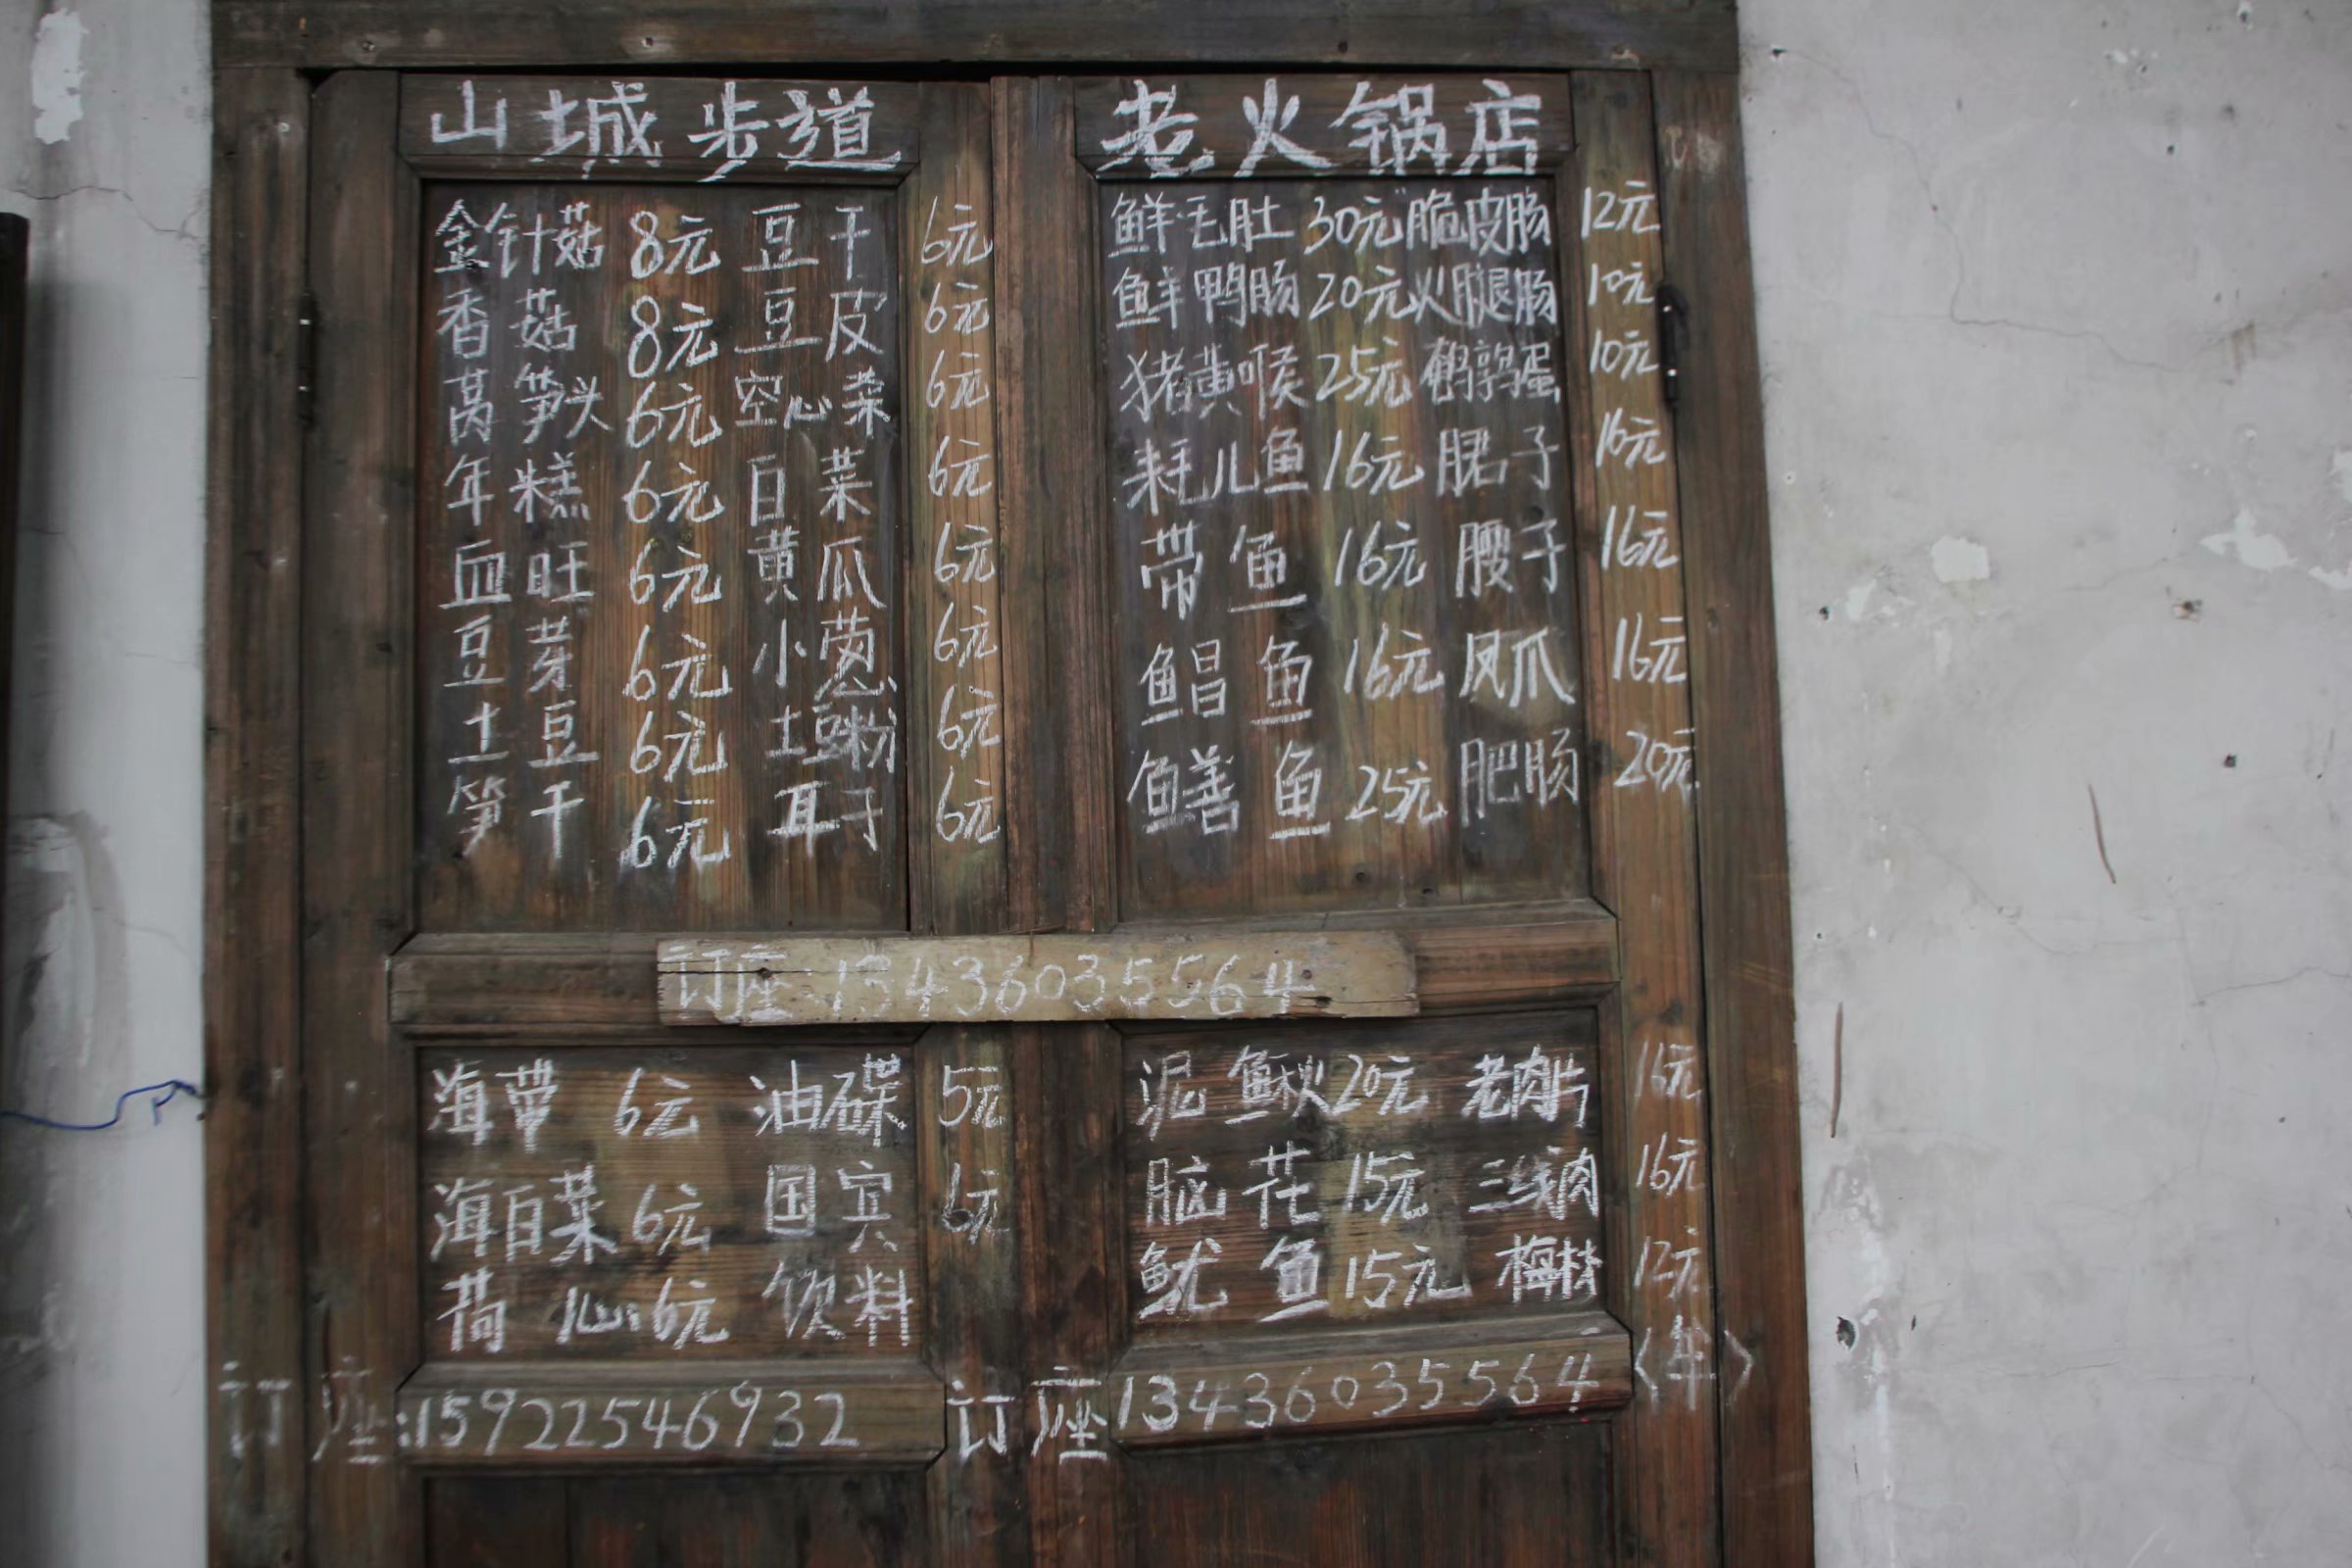 山城步道 老火锅店
金针菇 8元 豆干 6元
香菇 8元 豆皮 6元
莴笋头 6元 空心菜 6元
年糕 6元 白菜 6元
血旺 6元 黄瓜 6元
豆芽 6元 小葱 6元
土豆 6元 土豆粉 6元
笋干 6元 耳子 6元
鲜毛肚 30元 脆皮肠 12元
鲜鸭肠 20元 火腿肠 10元
猪黄喉 25元 鹌鹑蛋 10元
耗儿鱼 16元 䐃子 16元
带鱼 16元 腰子 16元
鲳鱼 16元 凤爪 16元
鳝鱼 25元 肥肠 20元
订座:13436035564
海带 6元 油碟 5元
海白菜 6元 国宾 6元
荷心 6元 饮料
泥鳅 20元 老肉片 16元
脑花 15元 三线肉 16元
鱿鱼 15元 梅林 12元
订座:15922546932
订座13436035564〈牟〉